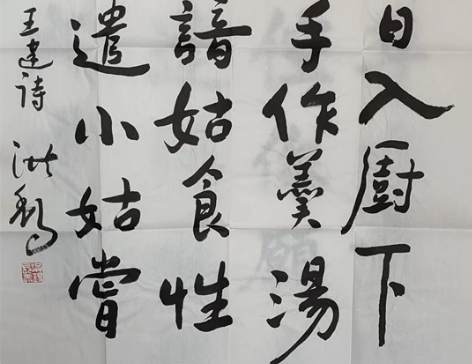 日入厨下
手作羹湯
諳姑食性
遣小姑嘗
王建诗
洪